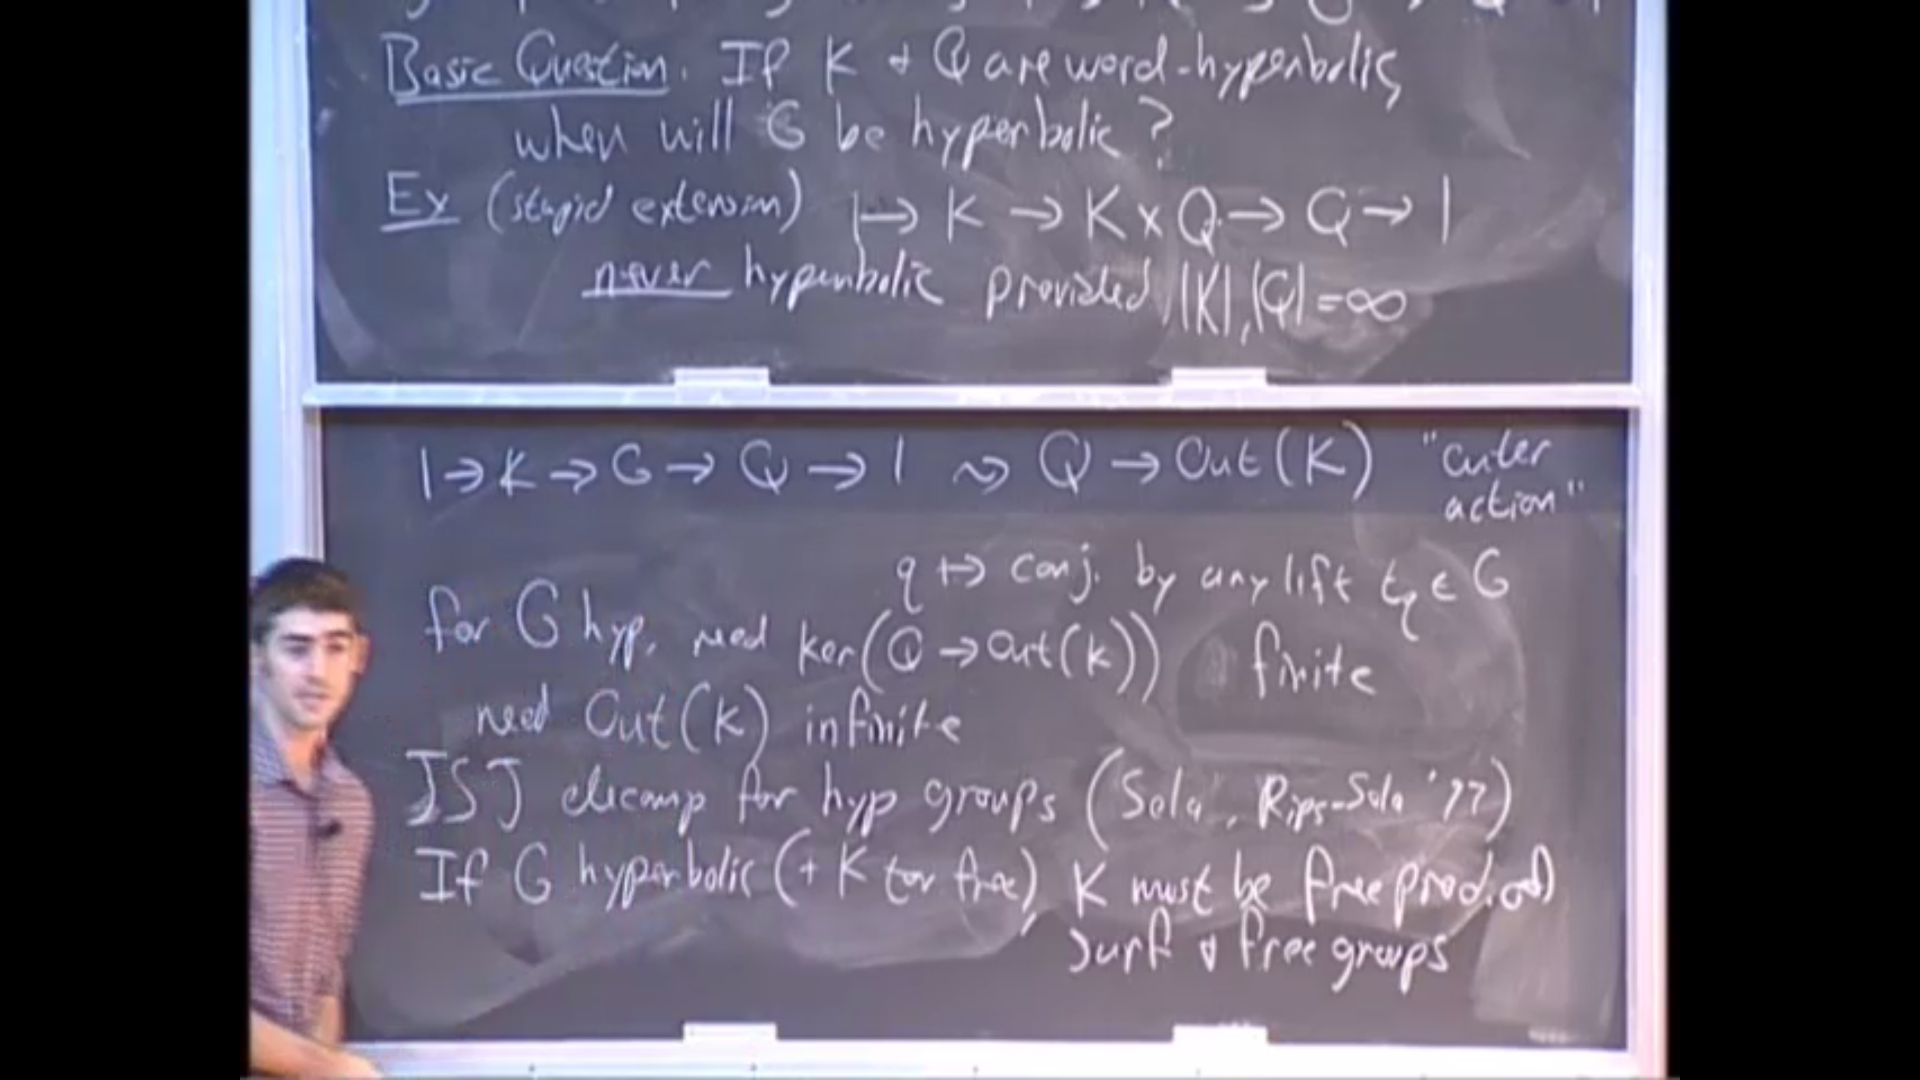 Basic Question. If K & Q are word-hyperbolic,
when will G be hyperbolic?
Ex (stupid extension) 1 → K → K × Q → Q → 1
never hyperbolic provided |K|, |Q| = ∞
1 → K → G → Q → 1 ⇝ Q → Out(K) "outer
action"
q ↦ conj. by any lift t_q ∈ G
for G hyp, need ker(Q → Out(K)) finite
need Out(K) infinite
JSJ decomp for hyp groups (Sela, Rips-Sela '97)
If G hyperbolic (+ K tor free), K must be free prod. of
surf & free groups